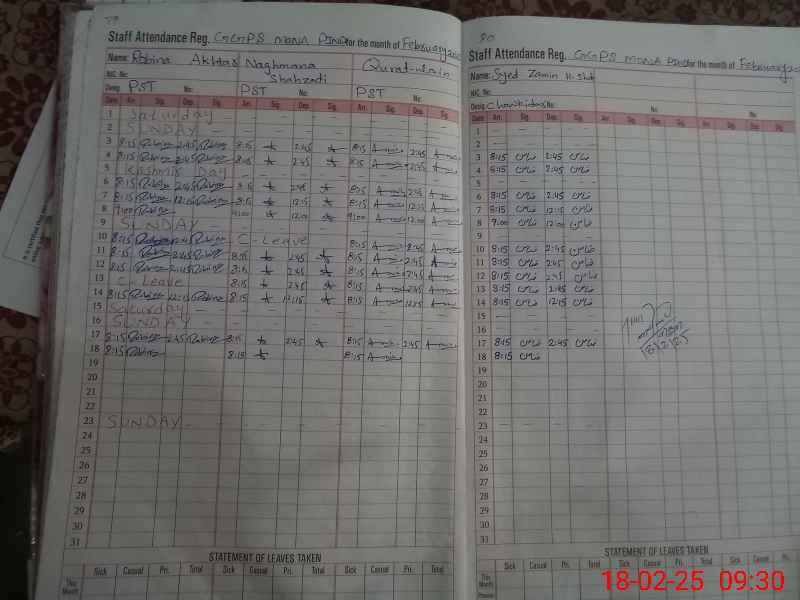 79
Staff Attendance Reg. GGPS MONA PIND for the month of February
Name: Robina Akhtar Naghmana Shahzadi Qurat-ul-ain
NIC. No:
Desig. PST No: PST No: PST No:
Date Arr. Sig. Dep. Sig. Arr. Sig. Dep. Sig. Arr. Sig. Dep. Sig.
1 Saturday
2 SUNDAY
3 8:15 Robina 2:45 Robina 8:15 2:45 8:15 2:45
4 8:15 Robina 2:45 Robina 8:15 2:45 8:15 2:45
5 Kashmir Day
6 8:15 Robina 2:45 Robina 8:15 2:45 8:15 2:45
7 8:15 Robina 12:15 Robina 8:15 12:15 8:15 12:15
8 9:00 Robina 9:00 12:00 9:00 12:00
9 SUNDAY
10 8:15 Robina 2:45 Robina C-Leave 8:15 2:45
11 8:15 Robina 2:45 Robina 8:15 2:45 8:15 2:45
12 8:15 Robina 2:45 Robina 8:15 2:45 8:15 2:45
13 C-Leave 8:15 2:45 8:15 2:45
14 8:15 Robina 12:15 Robina 8:15 12:15 8:15 12:15
15 Saturday
16 SUNDAY
17 8:15 Robina 2:45 Robina 8:15 2:45 8:15 2:45
18 8:15 Robina 8:15 8:15
19
20
21
22
23 SUNDAY
24
25
26
27
28
29
30
31
STATEMENT OF LEAVES TAKEN
Sick Casual Pri. Total Sick Casual Pri. Total Sick Casual Pri. Total
This Month
80
Staff Attendance Reg. GGPS MONA PIND for the month of February
Name: Syed Zamin H. Shah
NIC. No:
Desig. Chowkidar No: No: No:
Date Arr. Sig. Dep. Sig. Arr. Sig. Dep. Sig. Arr. Sig. Dep. Sig.
1
2
3 8:15 2:45
4 8:15 2:45
5
6 8:15 2:45
7 8:15 12:15
8 9:00 12:00
9
10 8:15 2:45
11 8:15 2:45
12 8:15 2:45
13 8:15 2:45
14 8:15 12:15
15
16
17 8:15 2:45
18 8:15
19
20
21
22
23
24
25
26
27
28
29
30
31
18/2/25
STATEMENT OF LEAVES TAKEN
Sick Casual Pri. Total Sick Casual Pri. Total
This Month
18-02-25 09:30